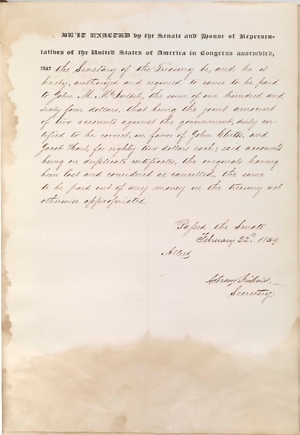 BE IT ENACTED by the Senate and House of Represen-
tatives of the United States of America in Congress assembled,
THAT the Secretary of the Treasury be, and he is
hereby, authorized and required to cause to be paid
to John M. McIntosh, the sum of one hundred and
sixty four dollars, that being the joint amount
of two accounts against the government, duly cer-
tified to be correct, in favor of John and
Jacob for eighty two dollars each; said accounts
being on duplicate certificates, the originals having
been lost and considered as cancelled, the same
to be paid out of any money in the treasury not
otherwise appropriated.
Passed the Senate
February 22d. 1849.
Attest,
Asbury Dickins,
Secretary